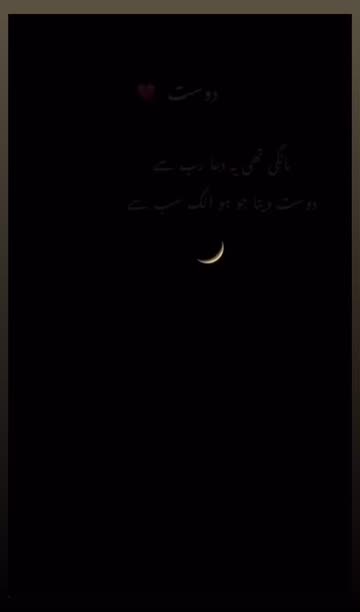 دوست ❤
مانگی تھی یہ دعا رب سے
دوست دینا جو ہو الگ سب سے